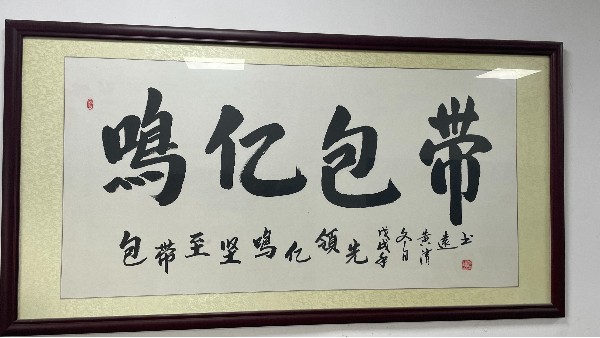 鸣亿包带
包带至坚鸣亿领先
戊戌年
冬日
黄清
远书